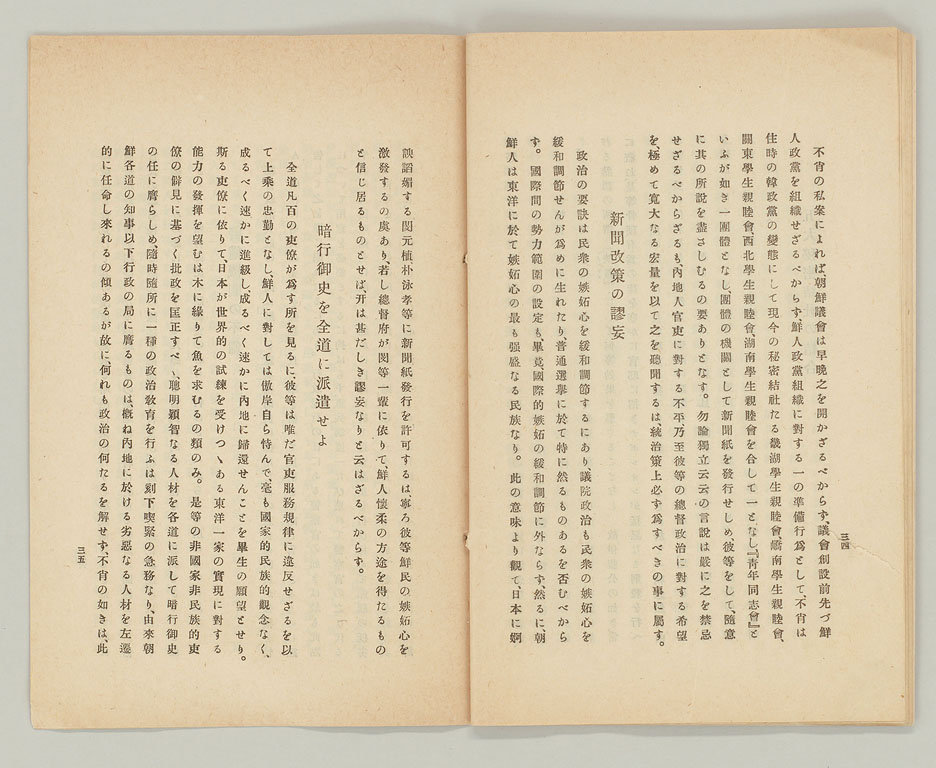 不肖の私案によれば、朝鮮議會は早晩之を開かざるべからず、議會創設前先づ鮮
人政黨を組織せざるべからず、鮮人政黨組織に對する一の準備行爲として、不肖は
住時の韓政黨の變態にして現今の秘密結社たる畿湖學生親睦會、嶠南學生親睦會、
關東學生親睦會、西北學生親睦會、湖南學生親睦會を合して一となし『靑年同志會』と
いふが如き一團體となし、團體の機關として新聞紙を發行せしめ彼等をして、隨意
に其の所說を盡さしむるの要ありとなす。勿論獨立云云の言說は嚴に之を禁忌
せざるべからざるも、內地人官吏に對する不平、乃至彼等の總督政治に對する希望
を、極めて寬大なる宏量を以て之を聽聞するは、統治策上必ず爲すべきの事に屬す。
新聞改策の謬妄
政治の要訣は民衆の嫉妬心を緩和調節するにあり、議院政治も民衆の嫉妬心を
緩和調節せんが爲めに生れたり、普通選擧に於て特に然るものあるを否むべから
す。國際間の勢力範圍の設定も、畢竟、國際的嫉妬の緩和調節に外ならず、然るに、朝
鮮人は東洋に於て嫉妬心の最も强盛なる民族なり。此の意味より觀て、日本に婀
三四
諛謟媚する閔元植朴泳孝等に新聞紙發行を許可するは、寧ろ彼等鮮民の嫉妬心を
激發するの虞あり、若し總督府が閔等一輩に依りて、鮮人懷柔の方途を得たるもの
と信じ居るものとせば、开は甚だしき謬妄なりと云はざるべからず。
暗行御史を全道に派遣せよ
全道凡百の吏僚が爲す所を見るに、彼等は唯だ官吏服務規律に違反せざるを以
て上乘の忠勤となし、鮮人に對しては傲岸自ら恃んで、毫も國家的民族的觀念なく、
成るべく速かに進級し、成るべく速かに內地に歸還せんことを畢生の願望とせり。
斯る吏僚に依りて、日本が世界的の試練を受けつゝある東洋一家の實現に對する
能力の發揮を望むは木に緣りて魚を求むるの類のみ。是等の非國家非民族的吏
僚の僻見に基づく批政を匡正すべく、聰明穎智なる人材を各道に派して暗行御史
の任に膺らしめ、隨時隨所に一種の政治敎育を行ふは刻下喫緊の急務なり、由來朝
鮮各道の知事以下行政の局に膺るものは、槪ね內地に於ける劣惡なる人材を左遷
的に任命し來れるの傾あるが故に、何れも政治の何たるを解せず、不肖の如きは、此
三五